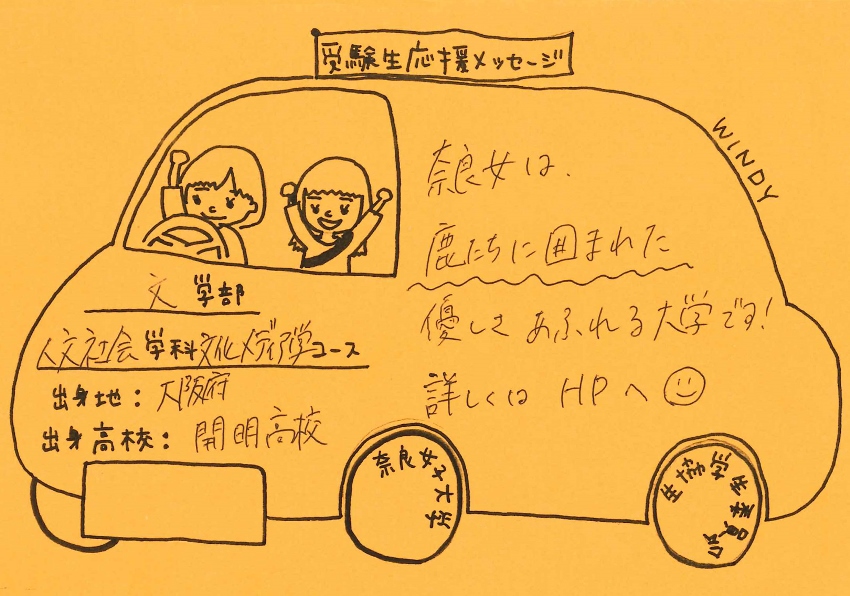 受験生応援メッセージ
WINDY
奈良女は、
鹿たちに囲まれた
優しさあふれる大学です!
詳しくは HPへ
文学部
人文社会学科文化メディア学コース
出身地：大阪府
出身高校：開明高校
奈良女子大学
生協学生委員会